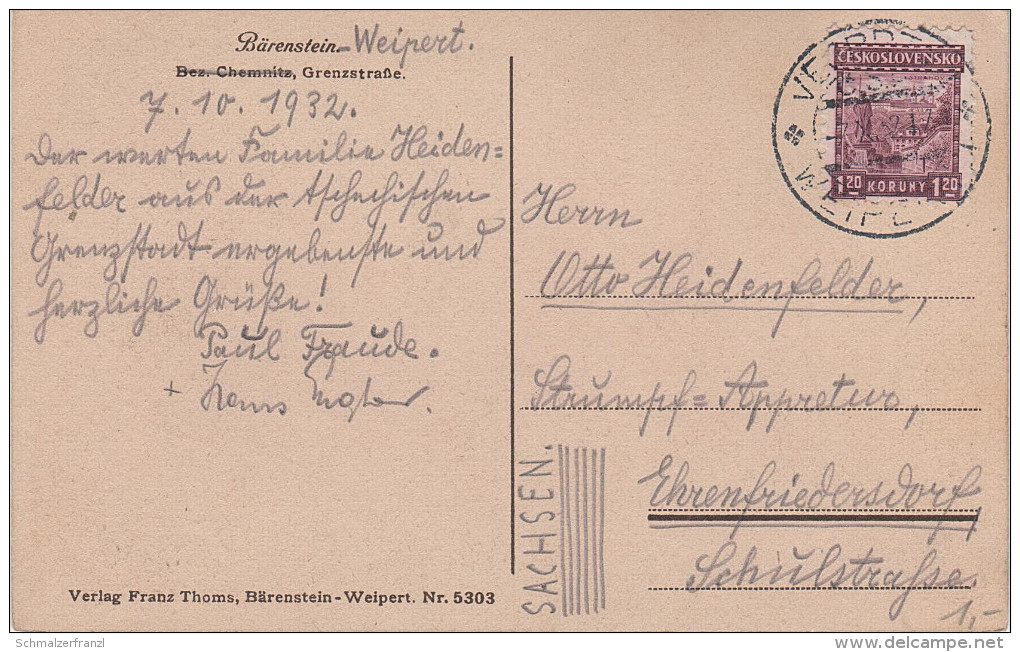 Bärenstein-Weipert.
Bez. Chemnitz, Grenzstraße.
7.10.1932.
Der werten Familie Heiden=
felder aus der tschechischen
Grenzstadt ergebenste und
herzliche Grüße!
Paul Fraude.
+ Hans
Verlag Franz Thoms, Bärenstein-Weipert. Nr. 5303
ČESKOSLOVENSKO
1.20 KORUNY 1.20
WEIPERT
Herrn
Otto Heidenfelder,
Strumpf=Appretur,
Ehrenfriedersdorf,
Schulstraße.
SACHSEN.
1,-
Schmalzerfranzl
www.delcampe.net